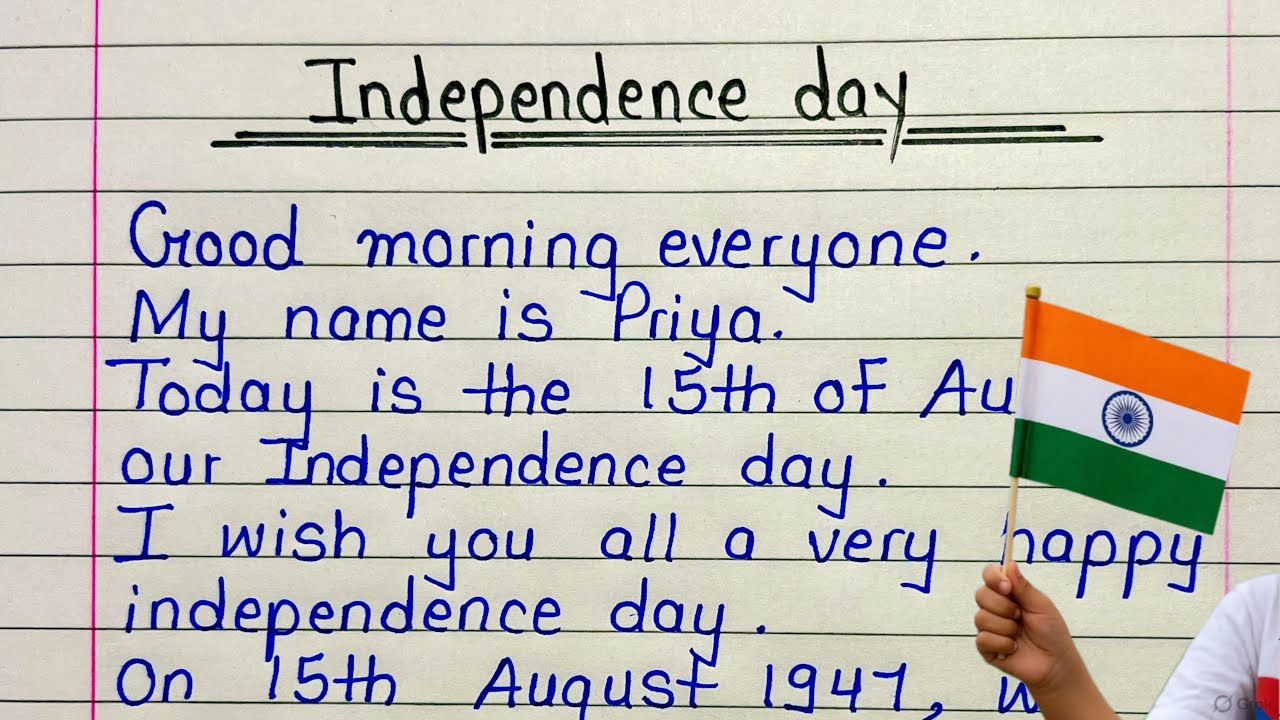 Independence day
Good morning everyone.
My name is Priya.
Today is the 15th of
our Independence day.
I wish you all a very happy
independence day.
On 15th August 1947,
Grok